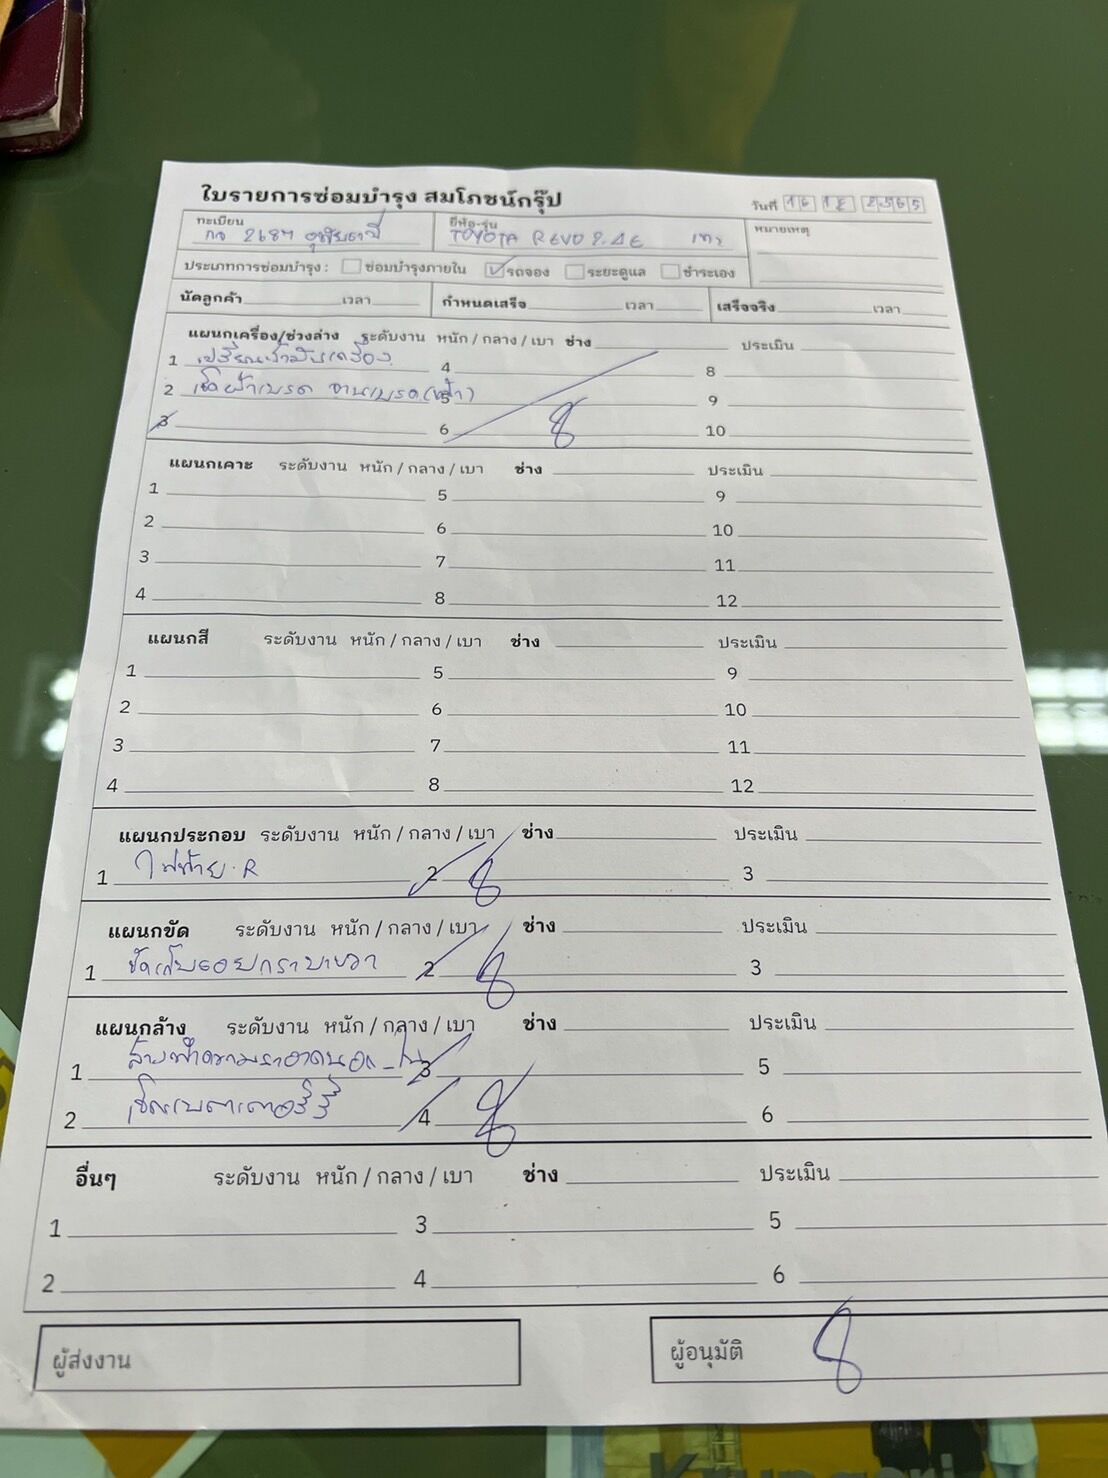 ใบรายการซ่อมบำรุง สมโภชน์กรุ๊ป
วันที่ 16 12 2565
ทะเบียน
กจ 2687 อุทัยธานี
ยี่ห้อ-รุ่น
TOYOTA REVO 2.4E เทา
หมายเหตุ
ประเภทการซ่อมบำรุง : ซ่อมบำรุงภายใน รถจอง ระยะดูแล ชำระเอง
นัดลูกค้า เวลา กำหนดเสร็จ เวลา เสร็จจริง เวลา
แผนกเครื่อง/ช่วงล่าง ระดับงาน หนัก / กลาง / เบา ช่าง ประเมิน
1 เปลี่ยนน้ำมันเครื่อง 4 8
2 เช็คผ้าเบรค จานเบรค(หน้า) 5 9
3 6 10
แผนกเคาะ ระดับงาน หนัก / กลาง / เบา ช่าง ประเมิน
1 5 9
2 6 10
3 7 11
4 8 12
แผนกสี ระดับงาน หนัก / กลาง / เบา ช่าง ประเมิน
1 5 9
2 6 10
3 7 11
4 8 12
แผนกประกอบ ระดับงาน หนัก / กลาง / เบา ช่าง ประเมิน
1 ไฟท้าย.R 2 3
แผนกขัด ระดับงาน หนัก / กลาง / เบา ช่าง ประเมิน
1 ขัดเก็บรอย 2 3
แผนกล้าง ระดับงาน หนัก / กลาง / เบา ช่าง ประเมิน
1 ล้างทำความสะอาดนอก_ใน 3 5
2 เช็คแบตเตอรี่ 4 6
อื่นๆ ระดับงาน หนัก / กลาง / เบา ช่าง ประเมิน
1 3 5
2 4 6
ผู้ส่งงาน ผู้อนุมัติ